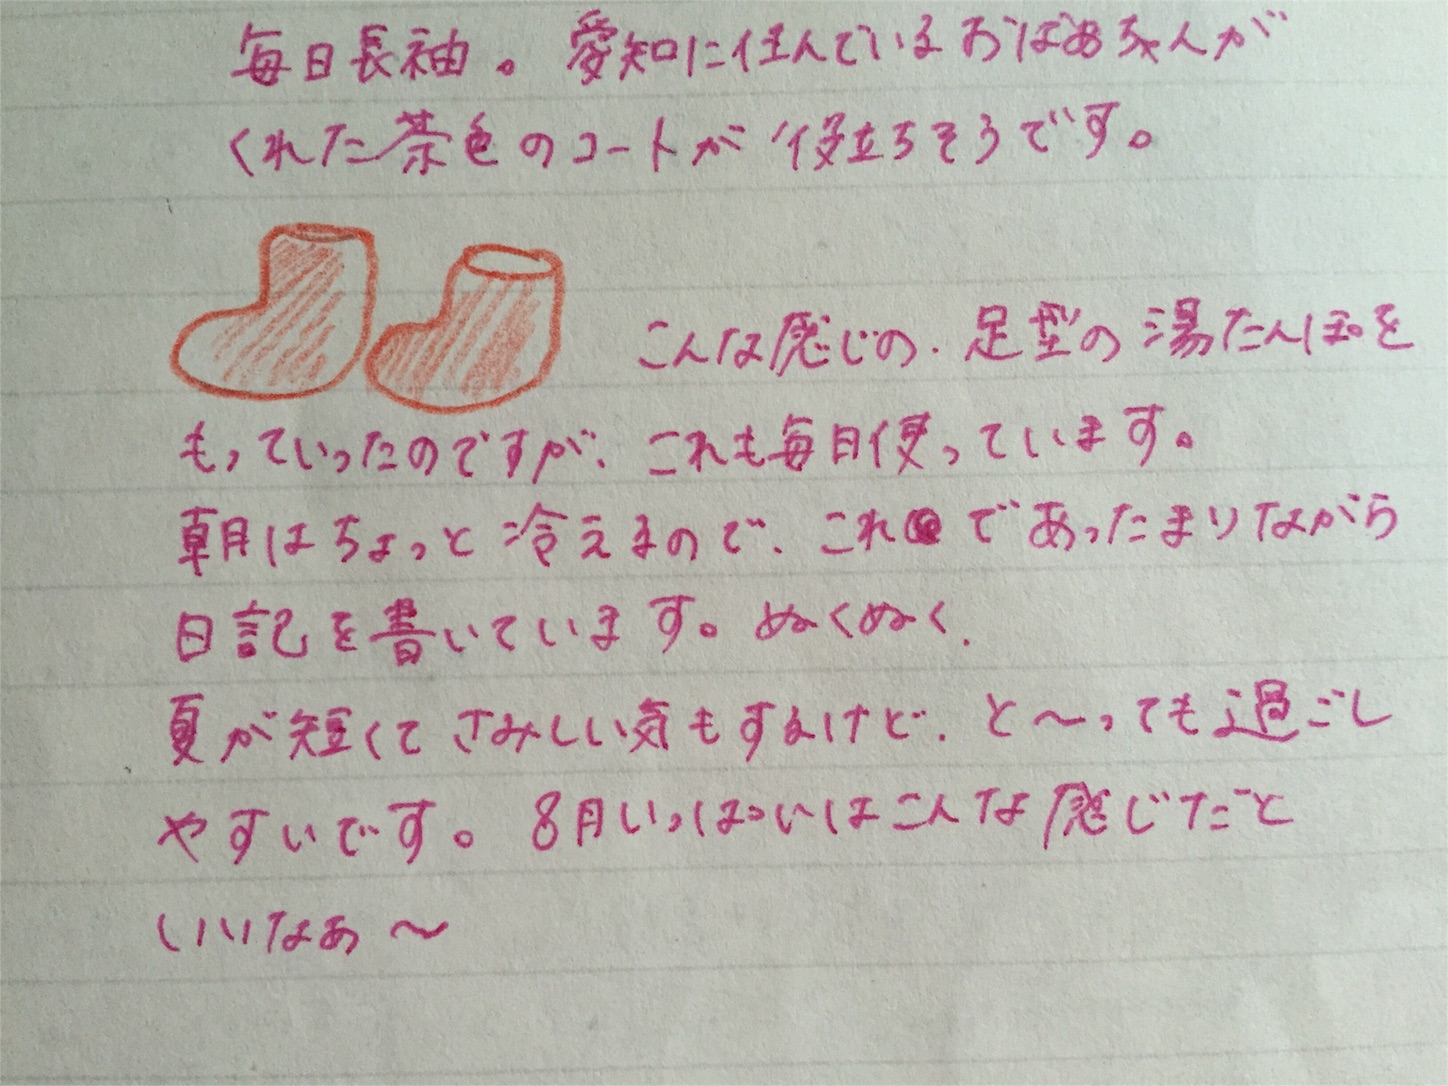 毎日長袖。愛知に住んでいるおばあちゃんが
くれた茶色のコートが役立ちそうです。
こんな感じの、足型の湯たんぽを
もっていったのですが、これも毎日使っています。
朝はちょっと冷えるので、これであったまりながら
日記を書いています。ぬくぬく。
夏が短くてさみしい気もするけど、と〜っても過ごし
やすいです。8月いっぱいはこんな感じだと
いいなあ〜